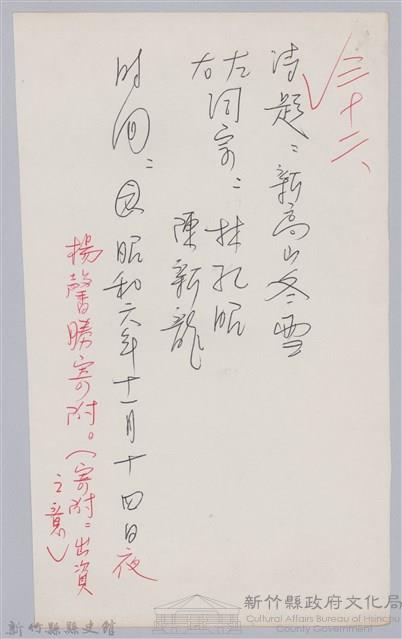 三十二、
詩題：新高山冬雪
左右詞宗：林孔昭
陳新龍
时间：昭和六年十一月十四日夜
楊馨勝寄附。（寄附：出資
之意
新竹縣政府文化局
Cultural Affairs Bureau of Hsinchu
County Government
新竹縣縣史館